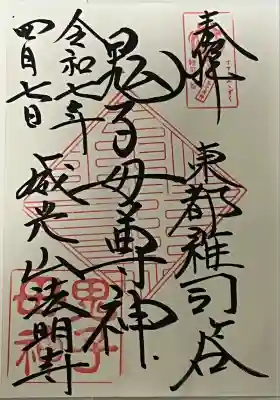 奉拝
東都雑司ヶ谷
鬼子母尊神
令和七年
四月七日
威光山法明寺
鬼子
母神